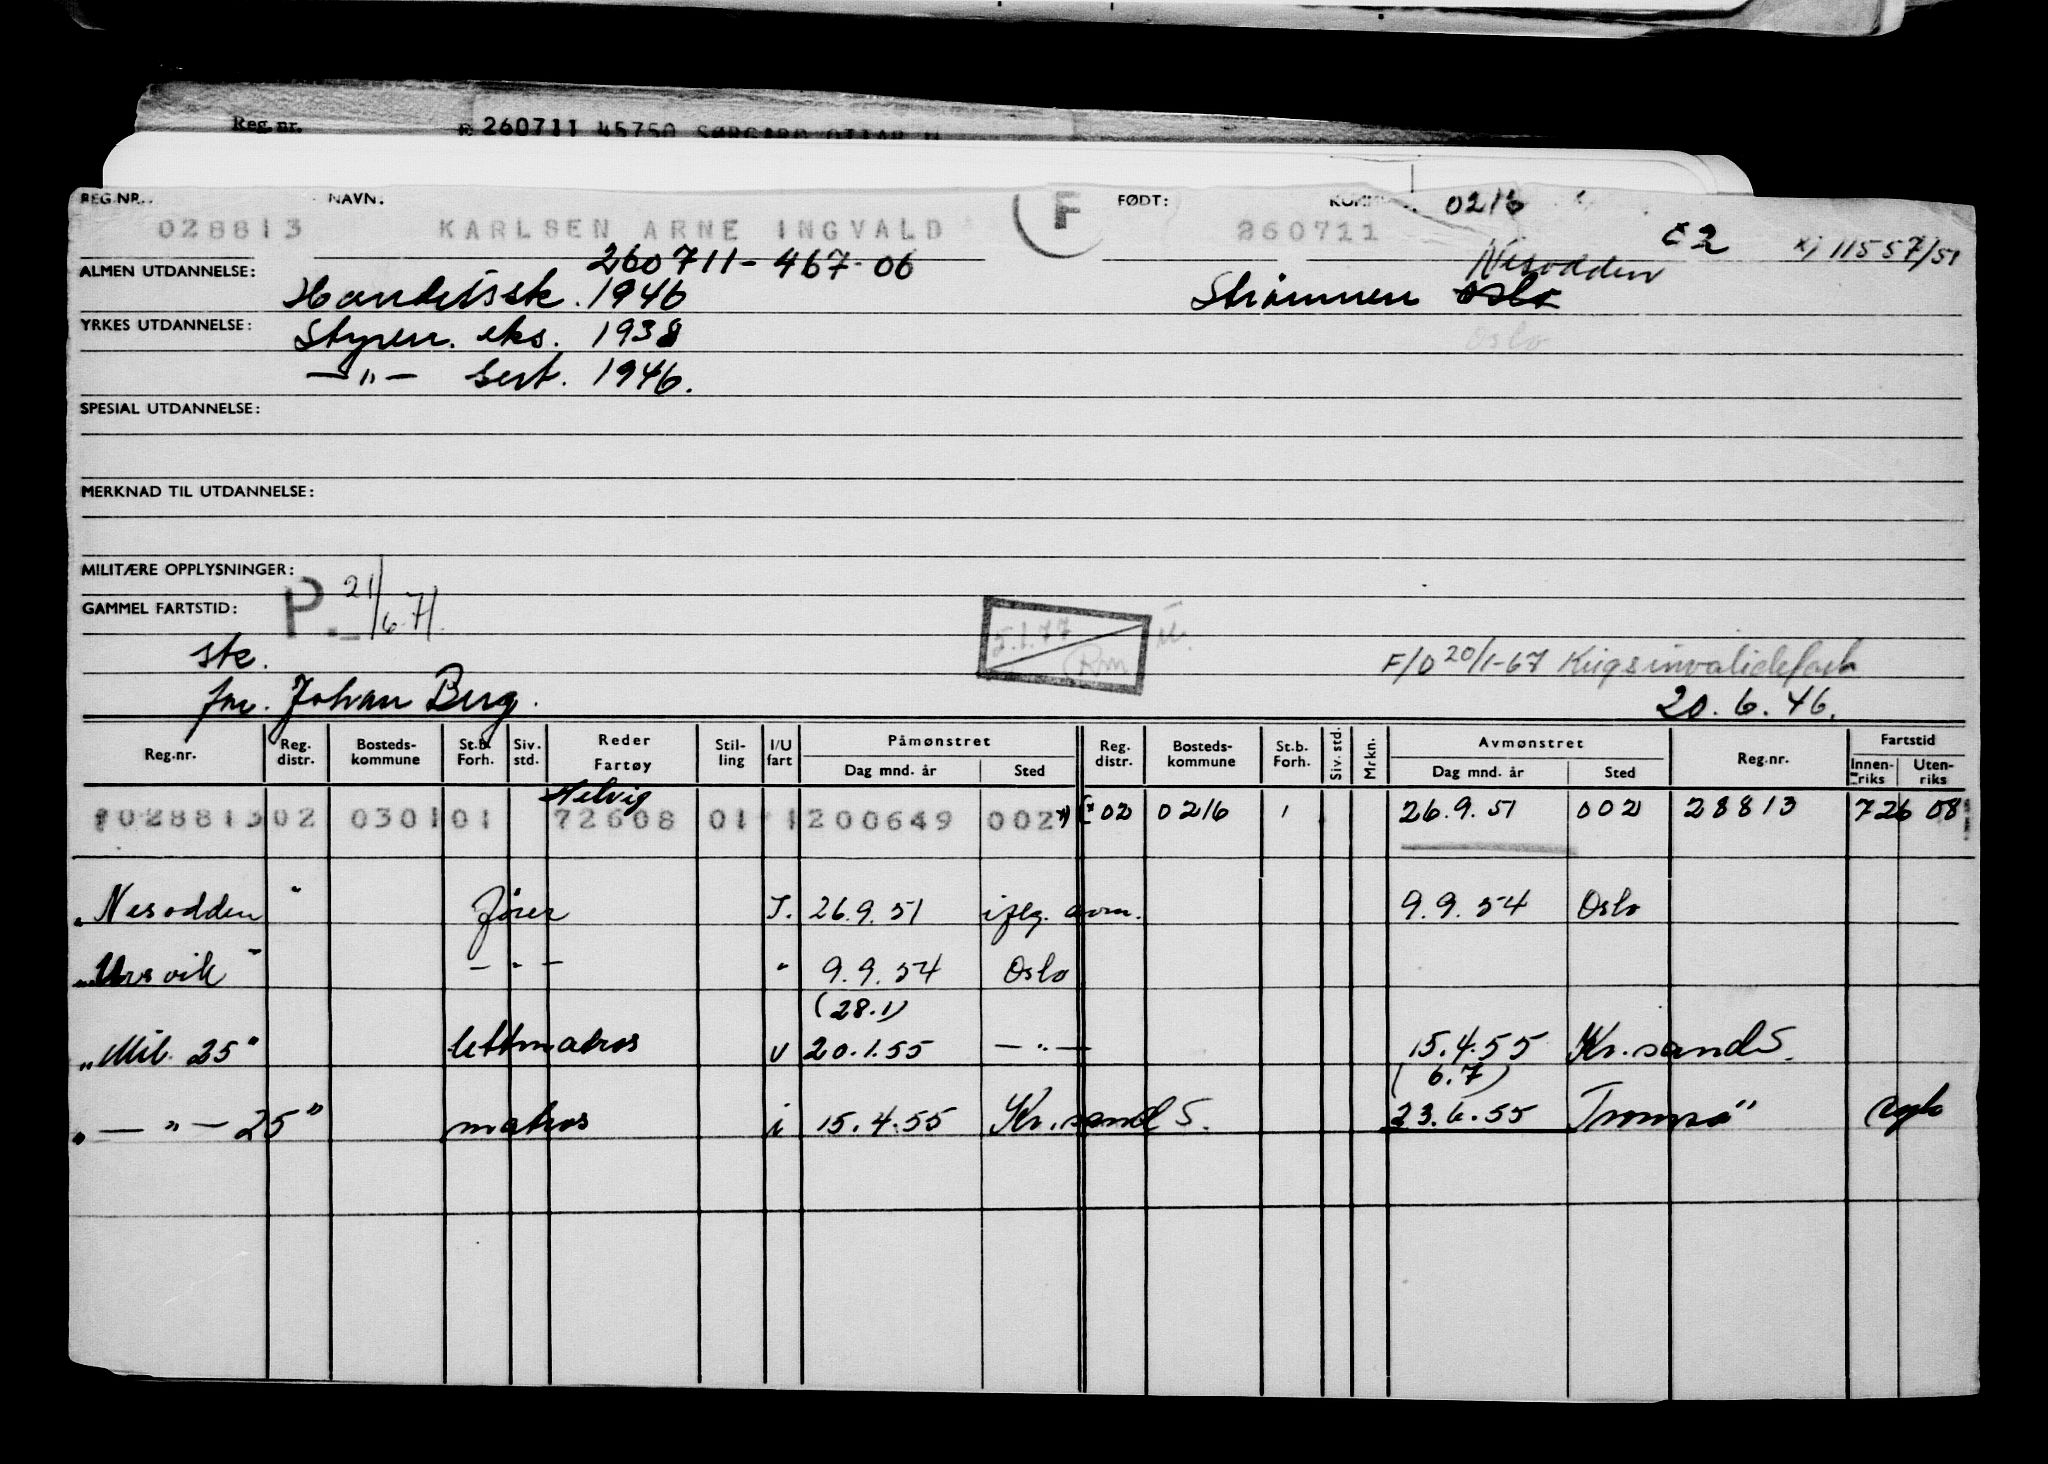 Reg.nr. 260711 45750
REG.NR. NAVN. F FØDT: 0216
028813 KARLSEN ARNE INGVALD 260711 Nesodden E2 x) 11557/51
260711-467-06
ALMEN UTDANNELSE: Handelssk. 1946 Strømmen Oslo
YRKES UTDANNELSE: Styrm. eks. 1938 Oslo
—"— Sert. 1946.
SPESIAL UTDANNELSE:
MERKNAD TIL UTDANNELSE:
MILITÆRE OPPLYSNINGER:
GAMMEL FARTSTID: P. 21/6.71.
5.1.77
ste. F/O 20/1-67 Krigsinvalidefork
far. Johan Berg. 20.6.46.
Reg.nr. Reg. distr. Bosteds-kommune St.b. Forh. Siv. std. Reder Fartøy Stil-ling I/U fart Påmønstret Dag mnd. år Sted Reg. distr. Bosteds-kommune St.b. Forh. Siv. std. Mrkn. Avmønstret Dag mnd. år Sted Reg.nr. Fartstid Innen-riks Uten-riks
Helvig
028813 02 0301 01 72608 01 1 200649 002 x) (x 02 0216 1 26.9.51 002 28813 726 08
"Nesodden" fører I. 26.9.51 iflg. avm. 9.9.54 Oslo
"Ursvik" —"— " 9.9.54 Oslo
(28.1)
"Mil. 25" lettmatros u 20.1.55 —"— 15.4.55 Kr.sand S.
(6.7)
"—"— 25" matros i 15.4.55 Kr.sand S. 23.6.55 Tromsø